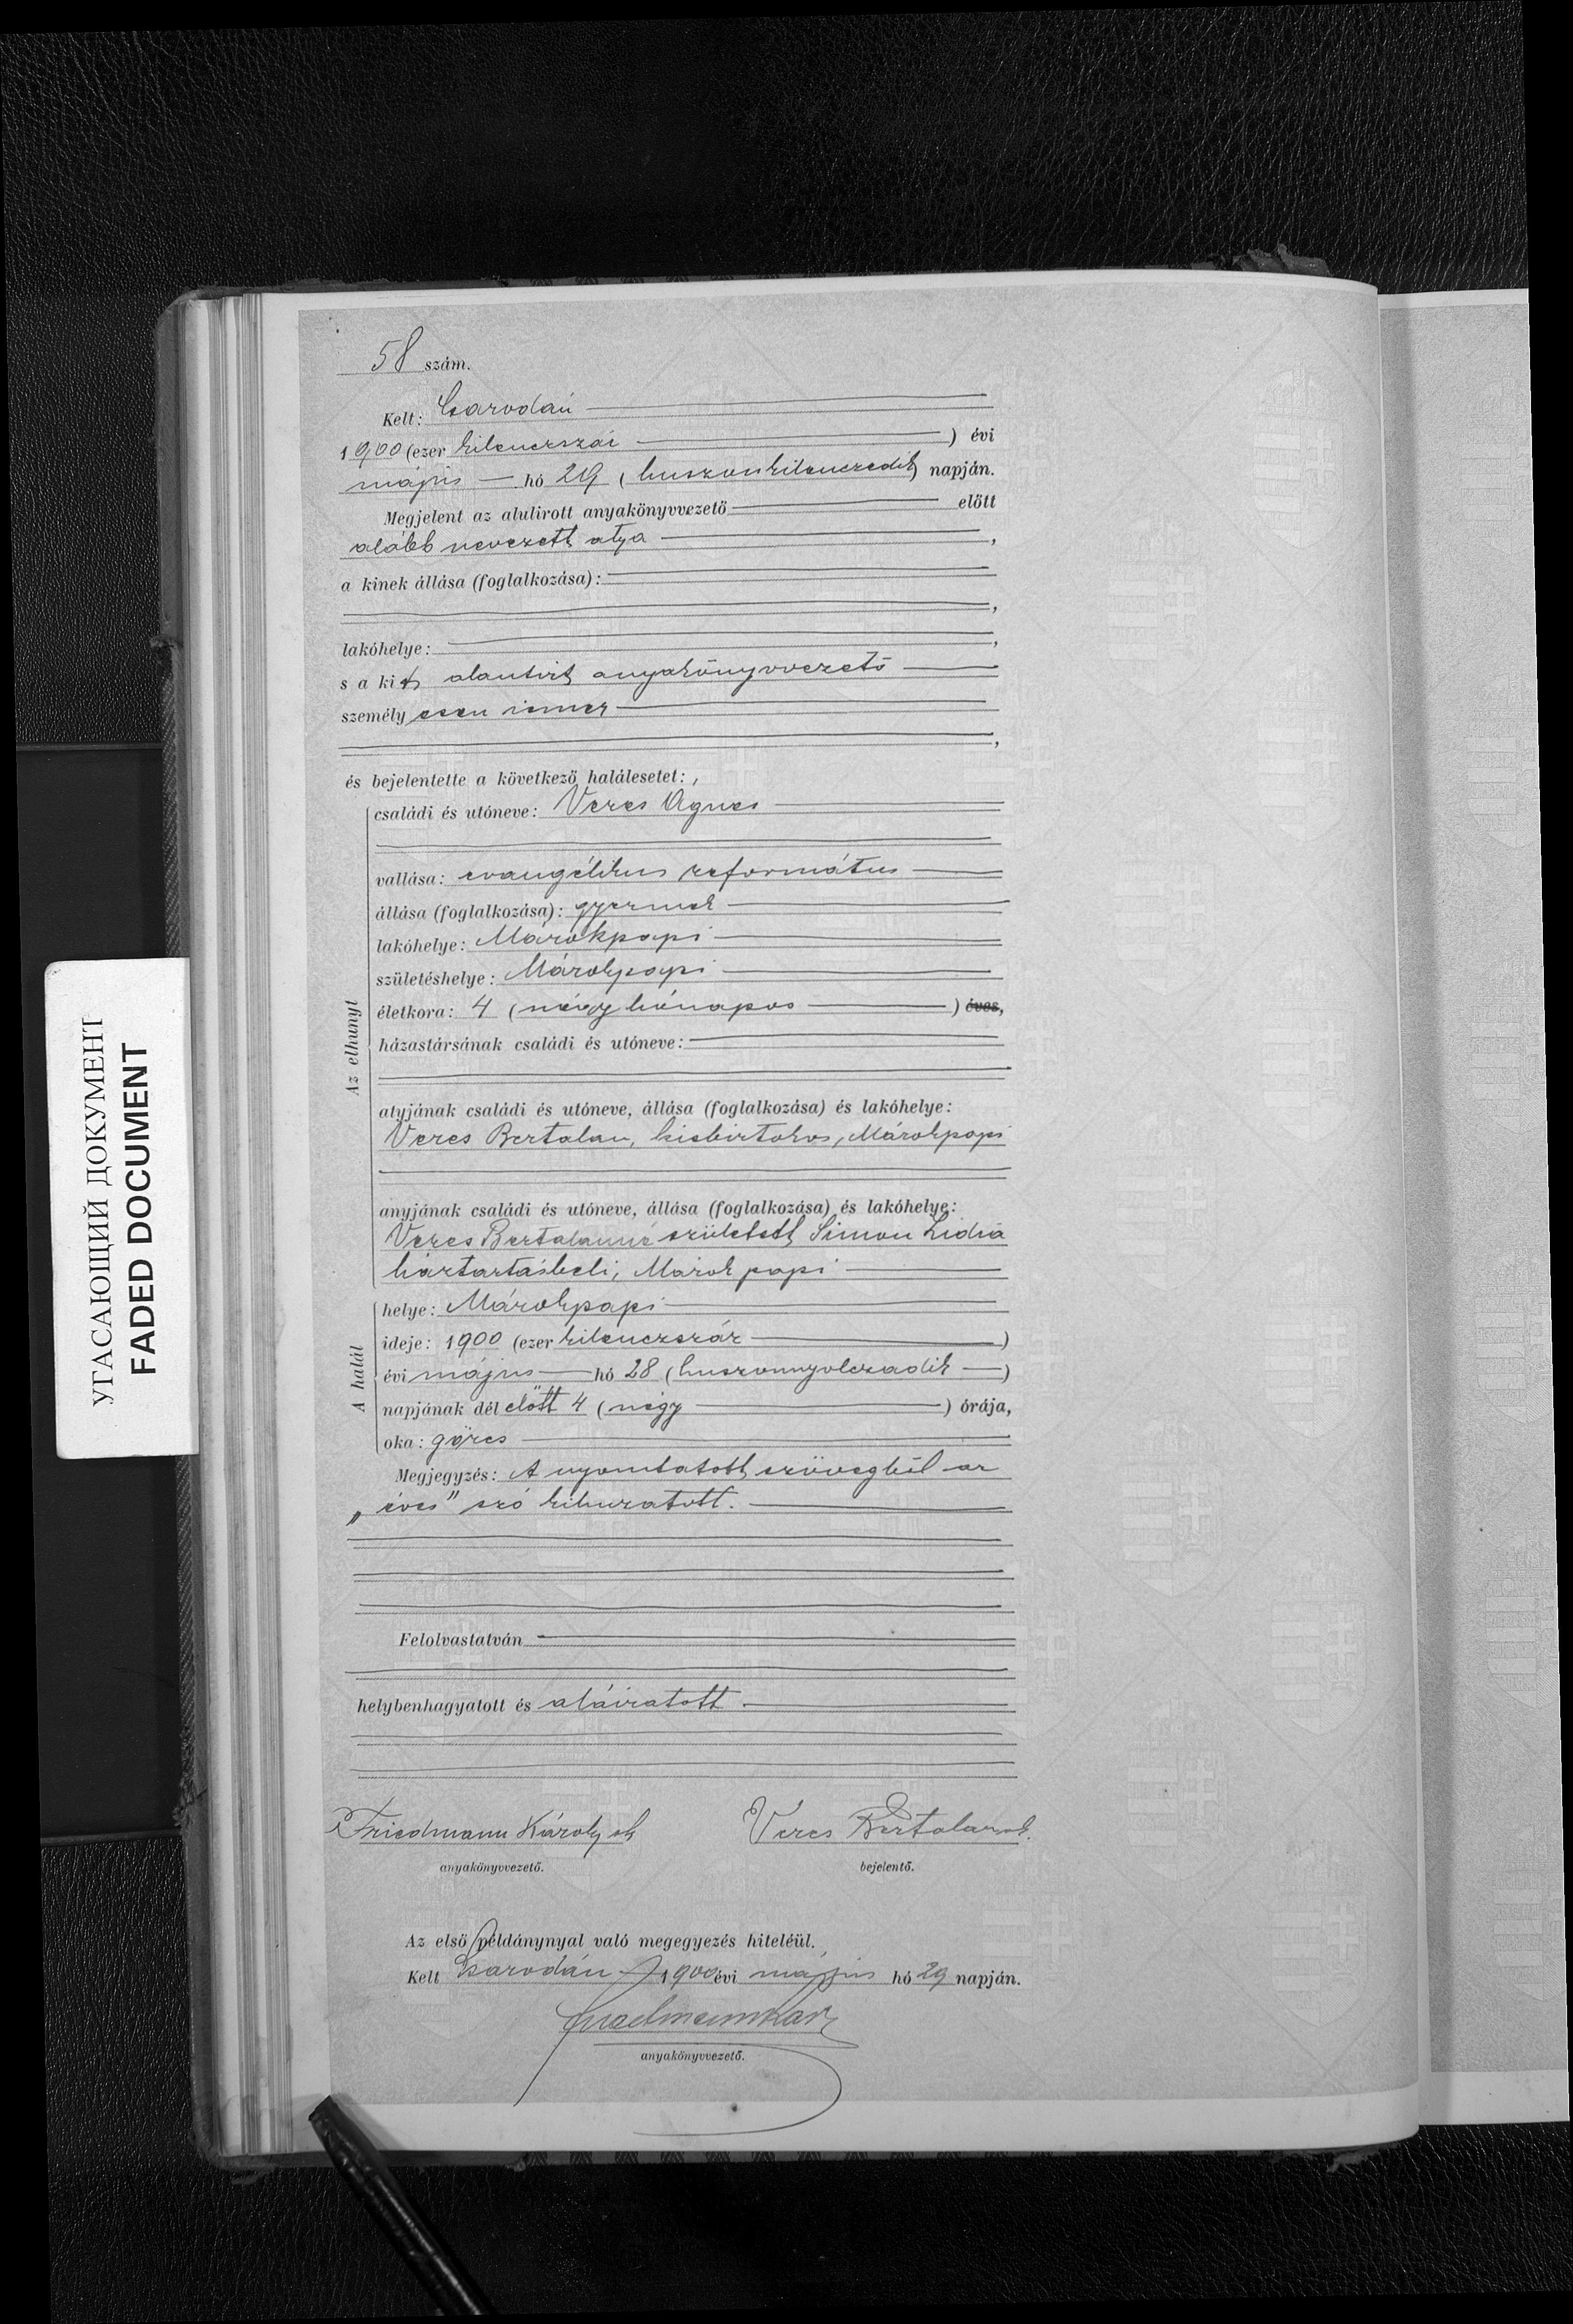 58 szám.
Kelt: Csarodán
1900 (ezer kilenczszáz ) évi
május hó 29 (huszonkilenczedik) napján.
Megjelent az alulirott anyakönyvvezető előtt
alább nevezett atya ,
a kinek állása (foglalkozása):
,
lakóhelye: ,
s a kit alantirt anyakönyvvezető
személyesen ismer
,
és bejelentette a következő halálesetet: ,
Az elhunyt
családi és utóneve: Veres Ágnes
vallása: evangélikus református
állása (foglalkozása): gyermek
lakóhelye: Márokpapi
születéshelye: Márokpapi
életkora: 4 (négy hónapos ) éves,
házastársának családi és utóneve:
atyjának családi és utóneve, állása (foglalkozása) és lakóhelye:
Veres Bertalan, kisbirtokos, Márokpapi
anyjának családi és utóneve, állása (foglalkozása) és lakóhelye:
Veres Bertalanné született Simon Lidia
háztartásbeli, Márokpapi
A halál
helye: Márokpapi
ideje: 1900 (ezer kilenczszáz )
évi május hó 28 (huszonnyolczadik )
napjának dél előtt 4 (négy ) órája,
oka: görcs
Megjegyzés: A nyomtatott szövegből az
„éves" szó kihuzatott.
Felolvastatván
helybenhagyatott és aláiratott
Friedmann Károly sk Veres Bertalan sk.
anyakönyvvezető. bejelentő.
Az első példánynyal való megegyezés hiteléül.
Kelt Csarodán 1900 évi május hó 29 napján.
anyakönyvvezető.
УГАСАЮЩИЙ ДОКУМЕНТ
FADED DOCUMENT